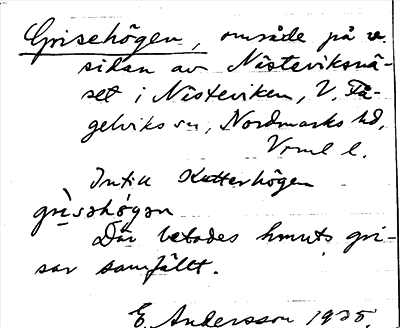 Grisehögen, område på v.
sidan av Nästeviksnä-
set i Nästeviken, V. Få-
gelviks sn, Nordmarks hd,
Vrml l.
Intill Kutterhögen
grìsəhö́gən
Där betades hmuts gri-
sar samfällt.
E. Andersson 1935.